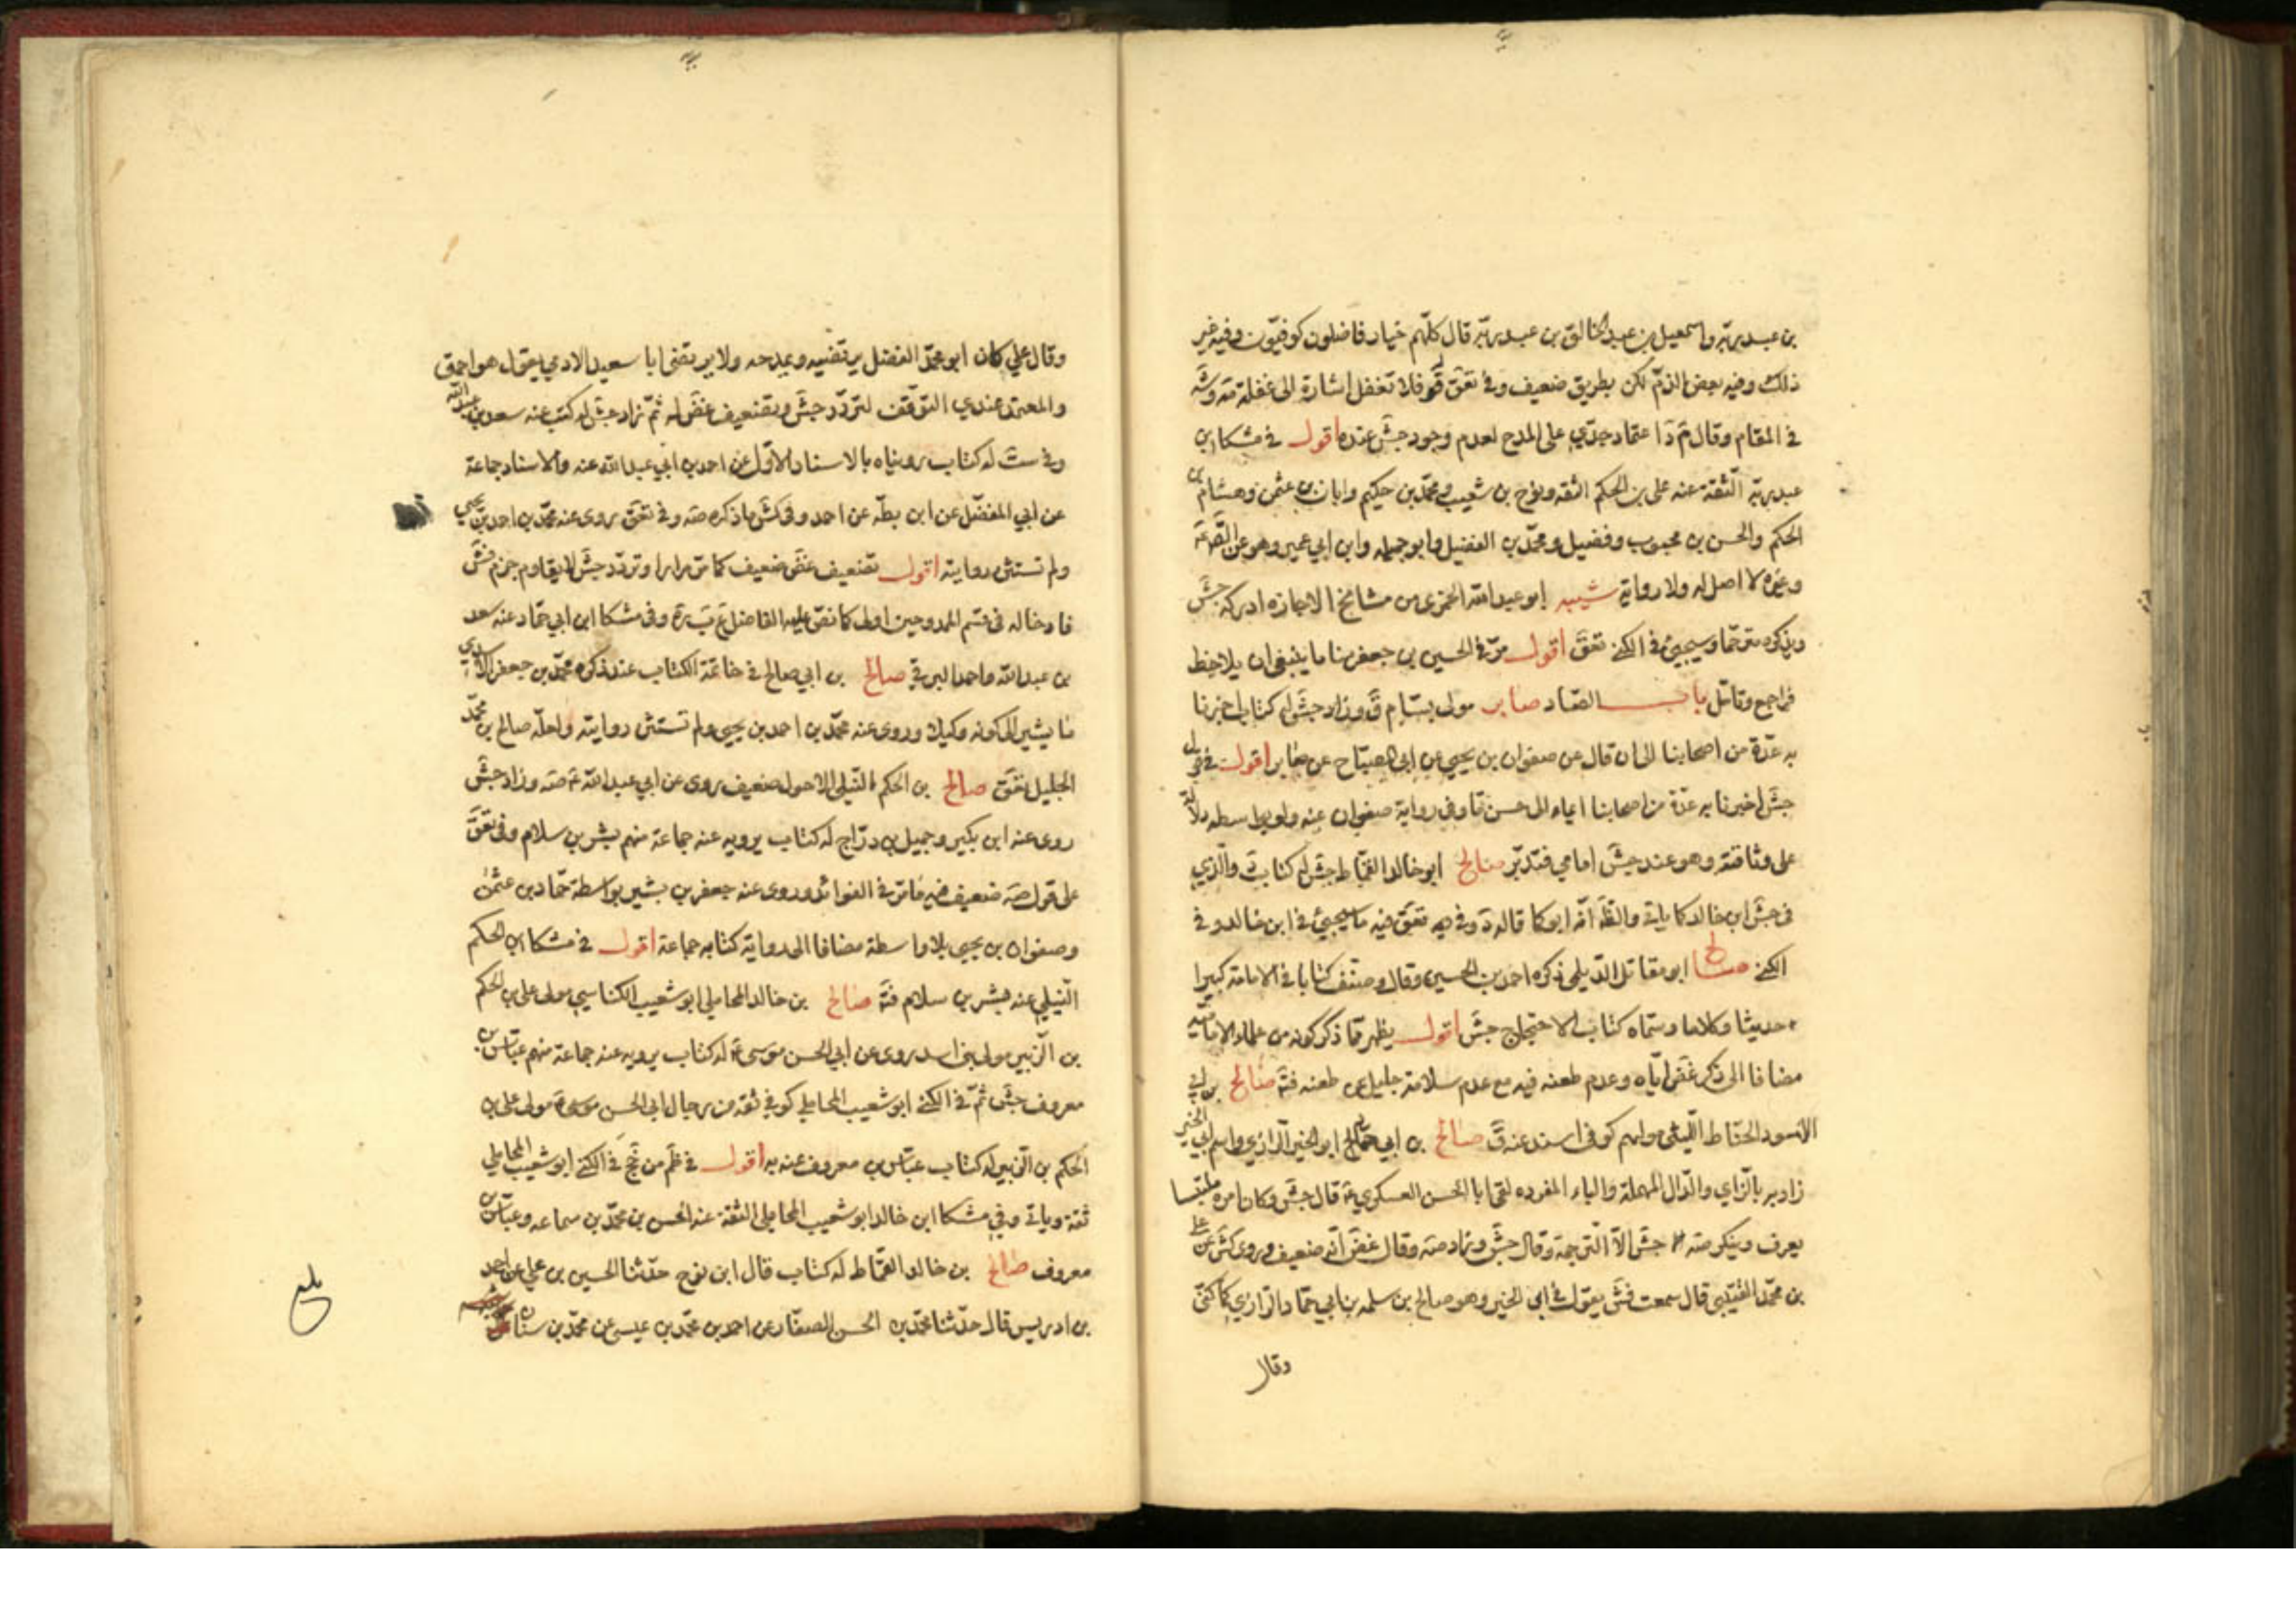 بن عبد ربّه واسمعيل بن عبد الخالق بن عبد ربّه قال كلّهم خيار فاضلون كوفيّون وفيه غير
ذلك وفيه بعض الذمّ لكن بطريق ضعيف وفي تعق قو فلا تغفل اشارة الى غفلة مه وشه
في المقام وقال م د ا عتماد جدّي على المدح لعدم وجود جش عنده اقول في مشكا ابن
عبد ربّه الثقة عنه علي بن الحكم الثقه ونوح بن شعيب ومحمّد بن حكيم وابان بن عثمن وهشام بن
الحكم والحسن بن محبوب وفضيل ومحمّد بن الفضيل وابو جميله وابن ابي عمير وهو عن
وغيره لا اصل له ولا رواية شيبه ابو عبد الله من مشايخ الاجازه ادركه جش
ويذكره مترحّما وسيجيئ في الكنى تعق اقول مرّ في الحسين بن جعفر منا ما ينبغي ان يلاحظ
فراجع وتامّل باب الصّاد صابر مولى بسّام ق وزاد جش له كتاب اخبرنا
به عدّة من اصحابنا الى ان قال عن صفوان بن يحيى عن ابي الصبّاح عن صابر اقول في قول
جش اخبرنا به عدّة من اصحابنا ايماء الى حسن ما وفي رواية صفوان عنه ولو بواسطه دلالة
على وثاقته وهو عند جش امامي فتدبّر صالح ابو خالد القمّاط جش له كتاب والّذي
في جش ابن خالد كما ياتي والظ انّه ابو كما قاله د وفي تعق فيه ما سيجيئ في ابن خالد وفي
الكنى صالح ابو مقاتل الدّيلمي ذكره احمد بن الحسين وقال وصنّف كتابا في الامامة كبيرا
حديثا وكلاما وسمّاه كتاب الاحتجاج جش اقول يظهر ممّا ذكر كونه من علماء الاماميّه
مضافا الى ذكر غض ايّاه وعدم طعنه فيه مع عدم سلامة جليل عن طعنه فتة صالح بن ابي
الاسود الحنّاط اللّيثي مولاهم كوفي اسند عنه ق صالح بن ابي حمّاد ابو الخير الرازي واسم ابي الخير
زادبه بالزاي والدّال المهملة والباء المفرده لقى ابا الحسن العسكري ع قال جش وكان امره ملتبسا
يعرف وينكر صه جش الاّ الترجمة وقال جش وزاد صه وقال غض انّه ضعيف وروى كش عن علي
بن محمّد القتيبي قال سمعت فش يقول في ابي الخير وهو صالح بن سلمه بن ابي حمّاد الرازي كما كنّي
وقال
وقال علي كان ابو محمّد الفضل يرتضيه ويمدحه ولا يرتضى ابا سعيد الادمي يقول هو احمق
والمعتمد عندي التوقّف لتردّد جش وتضعيف غض له ثمّ زاد جش له كتب عنه سعد بن عبد الله
وفي ست له كتاب رويناه بالاسناد الاوّل عن احمد بن ابي عبد الله عنه والاسناد جماعة
عن ابي المفضّل عن ابن بطّه عن احمد وفي كش ما ذكره صه وفي تعق روى عنه محمّد بن احمد بن يحيى
ولم تستثن روايته اقول تضعيف غض ضعيف كما مرّ مرارا وتردّد جش لا يقاوم جزم فش
فادخاله في قسم الممدوحين اولى كما نصّ عليه الفاضل وفي مشكا ابن ابي حمّاد عنه سعد
بن عبد الله واحمد البرقي صالح بن ابي صالح في خاتمة الكتاب عند ذكره محمّد بن جعفر الاسدي
ما يشير الى كونه وكيلا وروى عنه محمّد بن احمد بن يحيى ولم تستثن روايته ولعلّه صالح بن محمّد
الجليل تعق صالح بن الحكم النيلي الاحول ضعيف روى عن ابي عبد الله ع صه وزاد جش
روى عنه ابن بكير وجميل بن درّاج له كتاب يرويه عنه جماعة منهم بشر بن سلام وفي تعق
على قول صه ضعيف فيه ما مرّ في الفوائد وروى عنه جعفر بن بشير بواسطة حمّاد بن عثمن
وصفوان بن يحيى بلا واسطة مضافا الى رواية كتابه جماعة اقول في مشكا ابن الحكم
النّيلي عنه بشر بن سلام فتة صالح بن خالد المحاملي ابو شعيب الكناسي مولى علي بن الحكم
بن الزّبير مولى بني اسد روى عن ابي الحسن موسى ع له كتاب يرويه عنه جماعة منهم عبّاس بن
معروف جش ثمّ في الكنى ابو شعيب المحاملي كوفي ثقة من رجال ابي الحسن موسى ع مولى علي بن
الحكم بن الزّبير له كتاب عبّاس بن معروف عنه به اقول في ظم من جخ في الكنى ابو شعيب المحاملي
ثقة وياتي وفي مشكا ابن خالد ابو شعيب المحاملي الثقة عنه الحسن بن محمّد بن سماعه وعبّاس بن
معروف صالح بن خالد القمّاط له كتاب قال ابن نوح حدّثنا الحسين بن علي عن احمد
بن ادريس قال حدّثنا محمّد بن الحسن الصفّار عن احمد بن محمّد بن عيسى عن محمّد بن سنان
بلغ